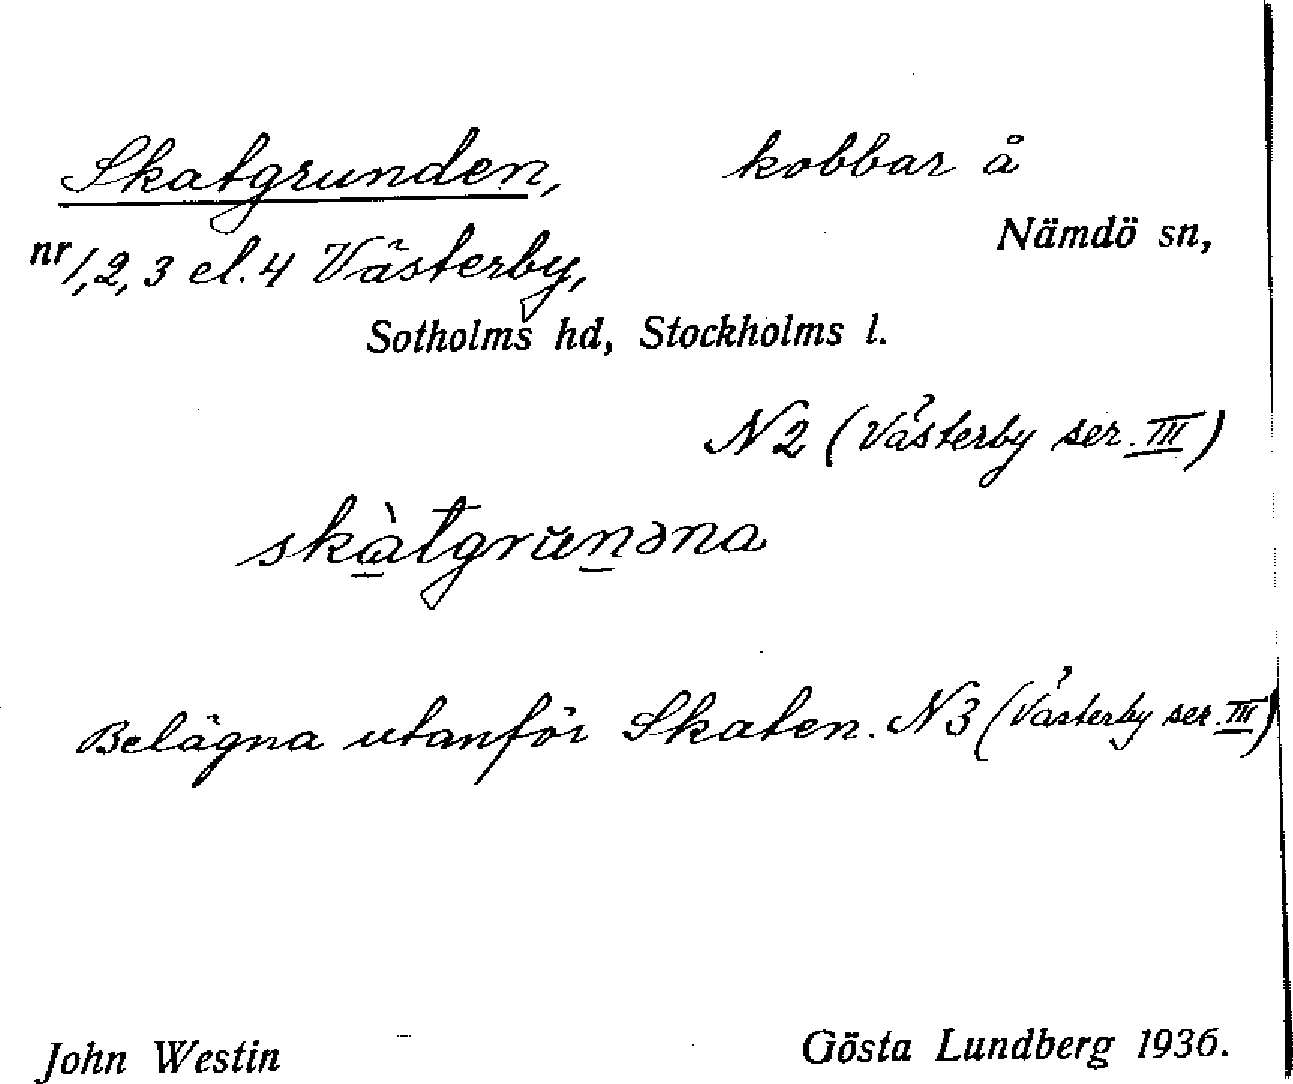 Skatgrunden, kobbar å
Nämdö sn,
nr 1, 2, 3 el. 4 Västerby,
Sotholms hd, Stockholms l.
N2 (Västerby ser. III)
skàtgrŭnəna
Belägna utanför Skaten. N3 (Västerby ser. III)
John Westin Gösta Lundberg 1936.